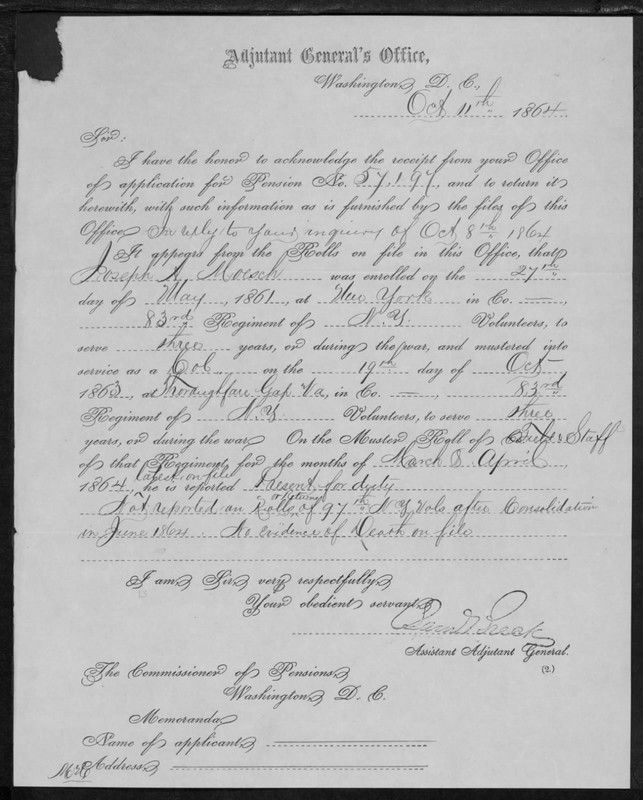 Adjutant General's Office,
Washington, D. C.,
Oct 11th 1864.
Sir:
I have the honor to acknowledge the receipt from your Office
of application for Pension No. 57,197, and to return it
herewith, with such information as is furnished by the files of this
Office. In reply to your inquiry of Oct 8th 1864
It appears from the Rolls on file in this Office, that
Joseph A. Moesch was enrolled on the 27th
day of May, 1861, at New York in Co. —,
83rd Regiment of N.Y. Volunteers, to
serve three years, or during the war, and mustered into
service as a Col. on the 19th day of Oct
1863, at Thoroughfare Gap Va, in Co. —, 83rd
Regiment of N.Y. Volunteers, to serve three
years, or during the war. On the Muster Roll of Field & Staff
of that Regiment, for the months of March & April,
1864, latest on file he is reported Present for duty
Not reported on Rolls or returns of 97th N.Y. Vols after Consolidation
in June 1864. No evidence of Death on file
I am, Sir, very respectfully,
Your obedient servant,
Saml Breck
Assistant Adjutant General.
(2.)
The Commissioner of Pensions,
Washington, D. C.
Memoranda,
Name of applicant,
Address,